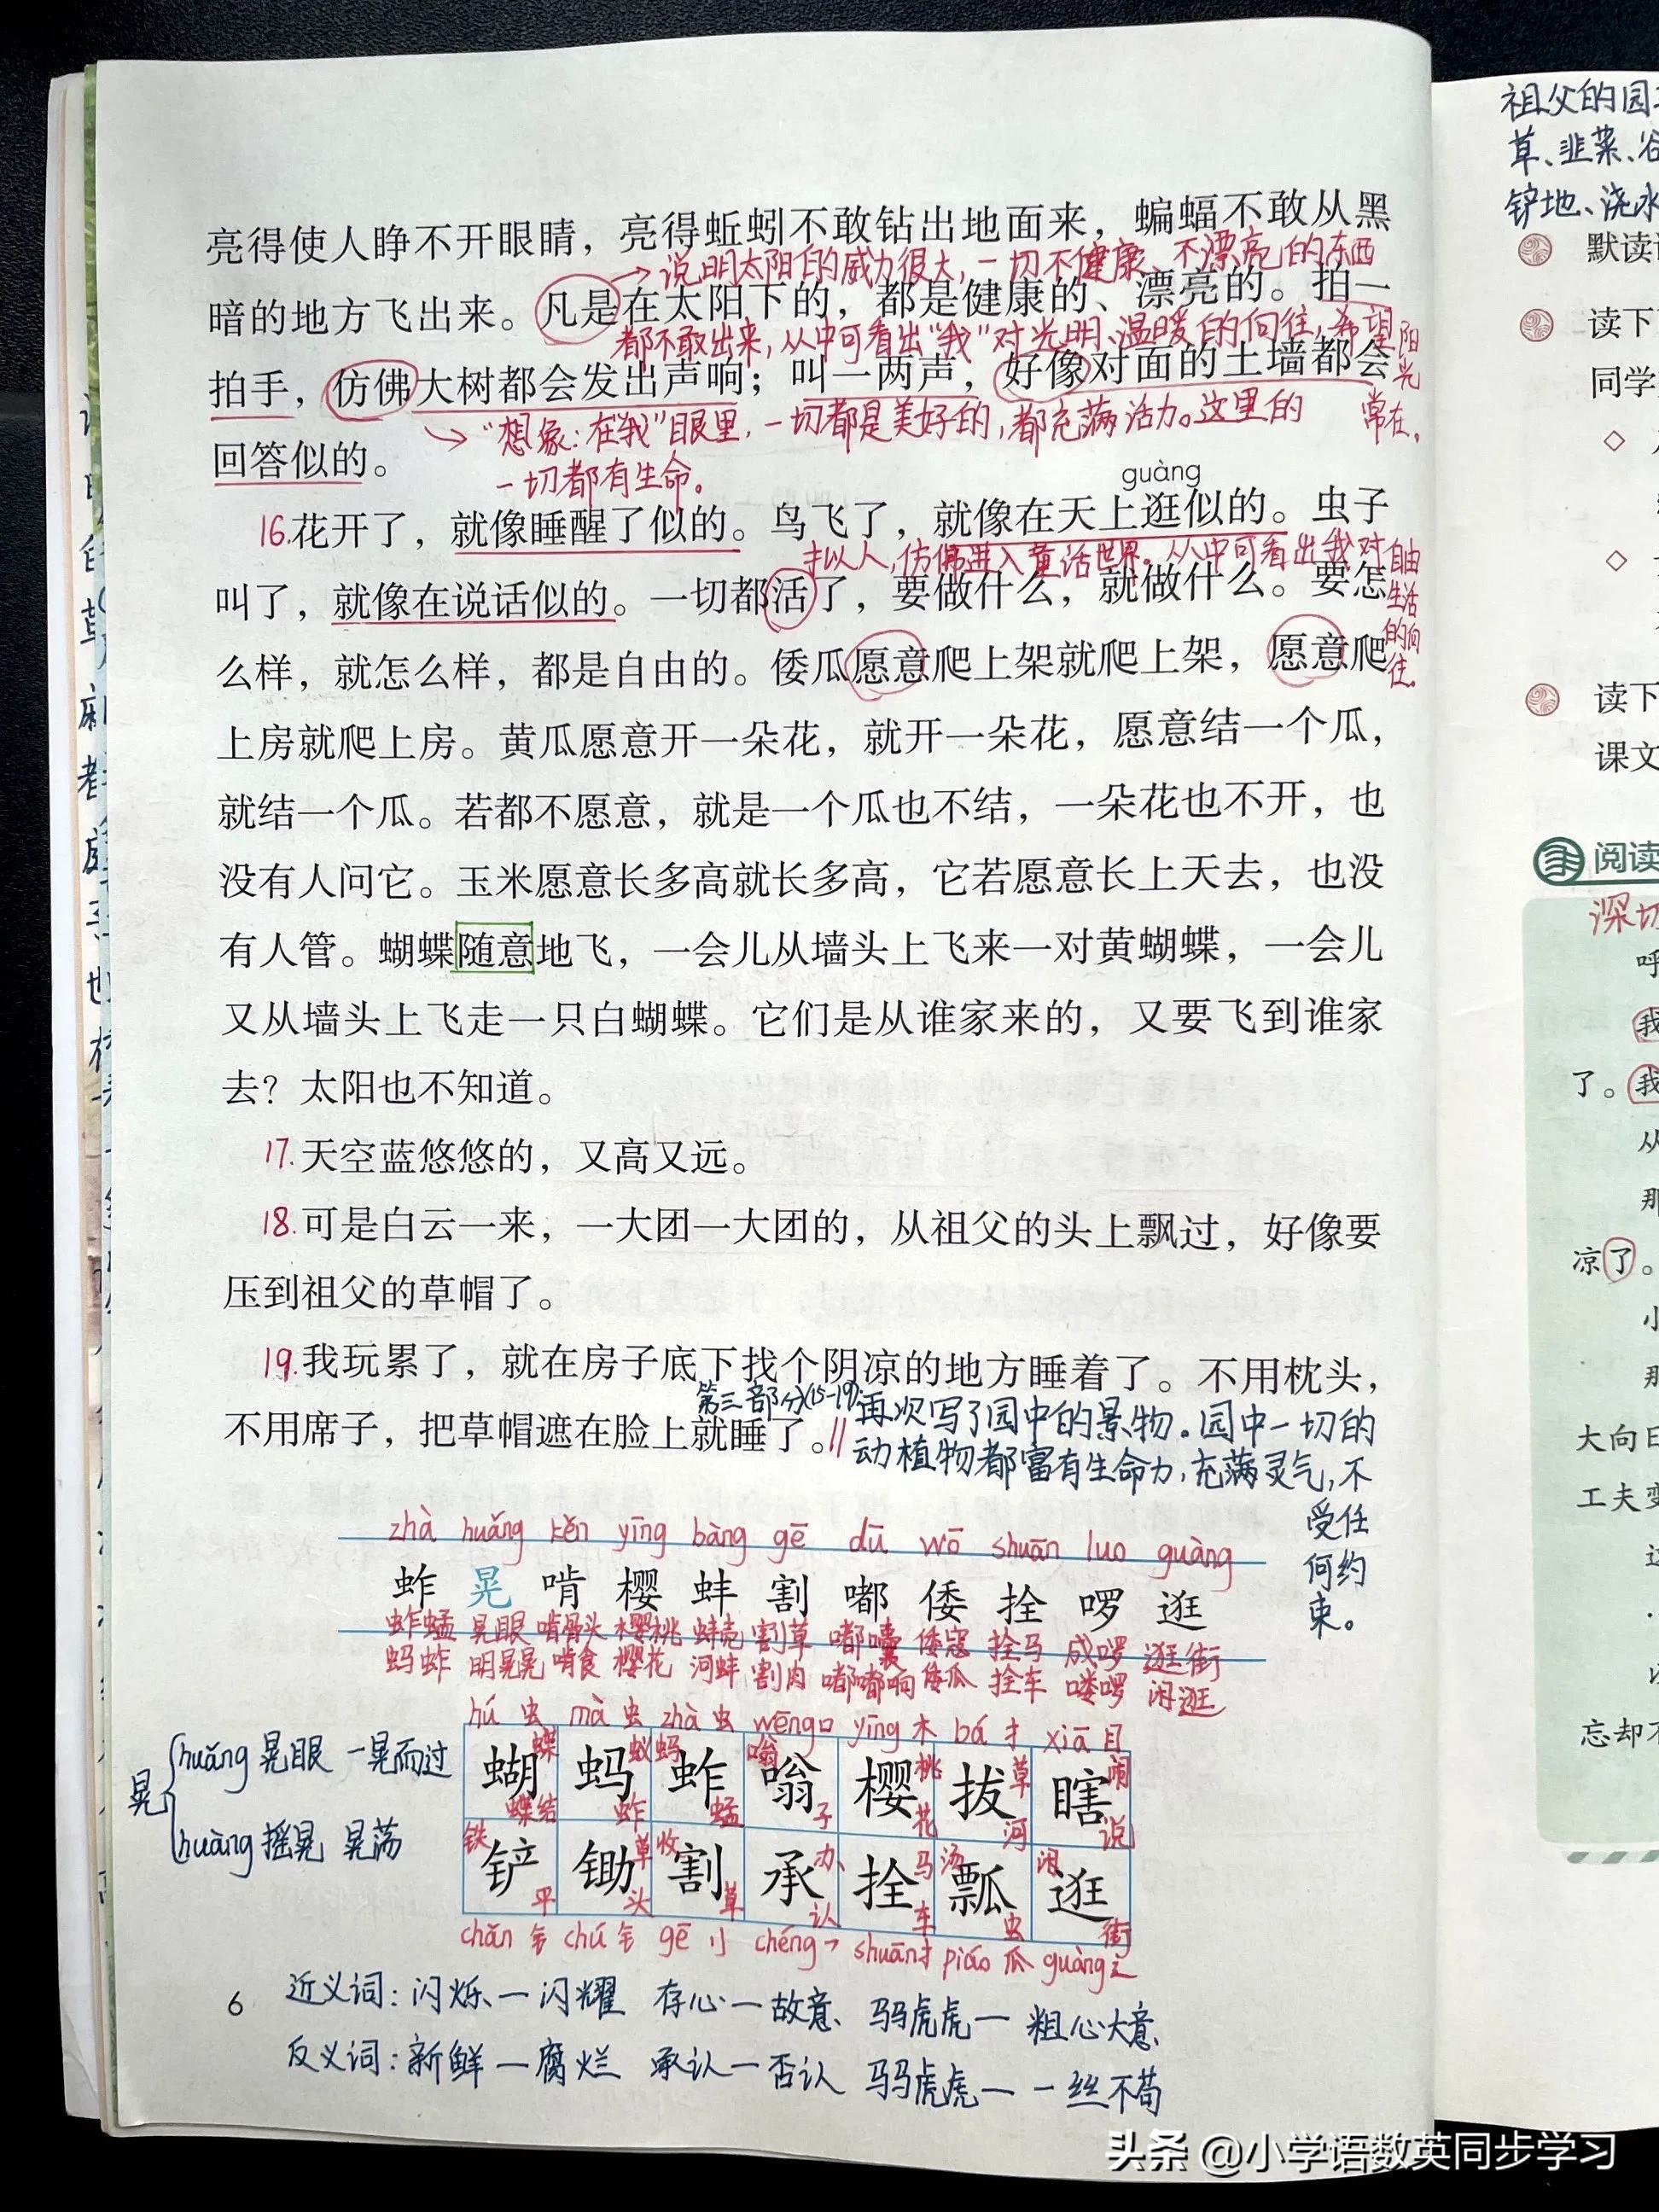 亮得使人睁不开眼睛，亮得蚯蚓不敢钻出地面来，蝙蝠不敢从黑
→说明太阳的威力很大，一切不健康、不漂亮的东西
暗的地方飞出来。凡是在太阳下的，都是健康的、漂亮的。拍一
都不敢出来，从中可看出“我”对光明、温暖的向往，希望阳光常在。
拍手，仿佛大树都会发出声响；叫一两声，好像对面的土墙都会
→“想象：在“我”眼里，一切都是美好的，都充满活力。这里的
回答似的。
一切都有生命。
guàng
16.花开了，就像睡醒了似的。鸟飞了，就像在天上逛似的。虫子
拟人，仿佛进入童话世界。从中可看出我对自由生活的向往。
叫了，就像在说话似的。一切都活了，要做什么，就做什么。要怎
么样，就怎么样，都是自由的。倭瓜愿意爬上架就爬上架，愿意爬
上房就爬上房。黄瓜愿意开一朵花，就开一朵花，愿意结一个瓜，
就结一个瓜。若都不愿意，就是一个瓜也不结，一朵花也不开，也
没有人问它。玉米愿意长多高就长多高，它若愿意长上天去，也没
有人管。蝴蝶随意地飞，一会儿从墙头上飞来一对黄蝴蝶，一会儿
又从墙头上飞走一只白蝴蝶。它们是从谁家来的，又要飞到谁家
去？太阳也不知道。
17.天空蓝悠悠的，又高又远。
18.可是白云一来，一大团一大团的，从祖父的头上飘过，好像要
压到祖父的草帽了。
19.我玩累了，就在房子底下找个阴凉的地方睡着了。不用枕头，
不用席子，把草帽遮在脸上就睡了。//
第三部分(15-19)再次写了园中的景物。园中一切的
动植物都富有生命力，充满灵气，不
受任
何约
束。
zhà huǎng kěn yīng bàng gē dū wō shuān luo guàng
蚱 晃 啃 樱 蚌 割 嘟 倭 拴 啰 逛
蚱蜢 晃眼 啃骨头 樱桃 蚌壳 割草 嘟囔 倭寇 拴马 成啰 逛街
蚂蚱 明晃晃 啃食 樱花 河蚌 割肉 嘟嘟响 倭瓜 拴车 喽啰 闲逛
晃
huǎng 晃眼 一晃而过
huàng 摇晃 晃荡
hú 虫 mà 虫 zhà 虫 wēng 口 yīng 木 bá 扌 xiā 目
蝶 蚁 蚂 嗡 桃 草 闹
蝴 蚂 蚱 嗡 樱 拔 瞎
蝶结 蚱 蜢 子 花 河 说
铁 草 收 办 马 汤 闲
铲 锄 割 承 拴 瓢 逛
平 头 草 认 车 虫 街
chǎn 钅 chú 钅 gē 刂 chéng 乛 shuān 扌 piáo 瓜 guàng 辶
6
近义词：闪烁—闪耀 存心—故意、马马虎虎—粗心大意、
反义词：新鲜—腐烂 承认—否认 马马虎虎—一丝不苟
祖父的园
草、韭菜、谷
铲地、浇水
默读
读下
同学
读下
课文
阅读
深切
呼
我
了。我
从
那
凉了。
小
那
大向日
工夫变
忘却不
头条 @小学语数英同步学习